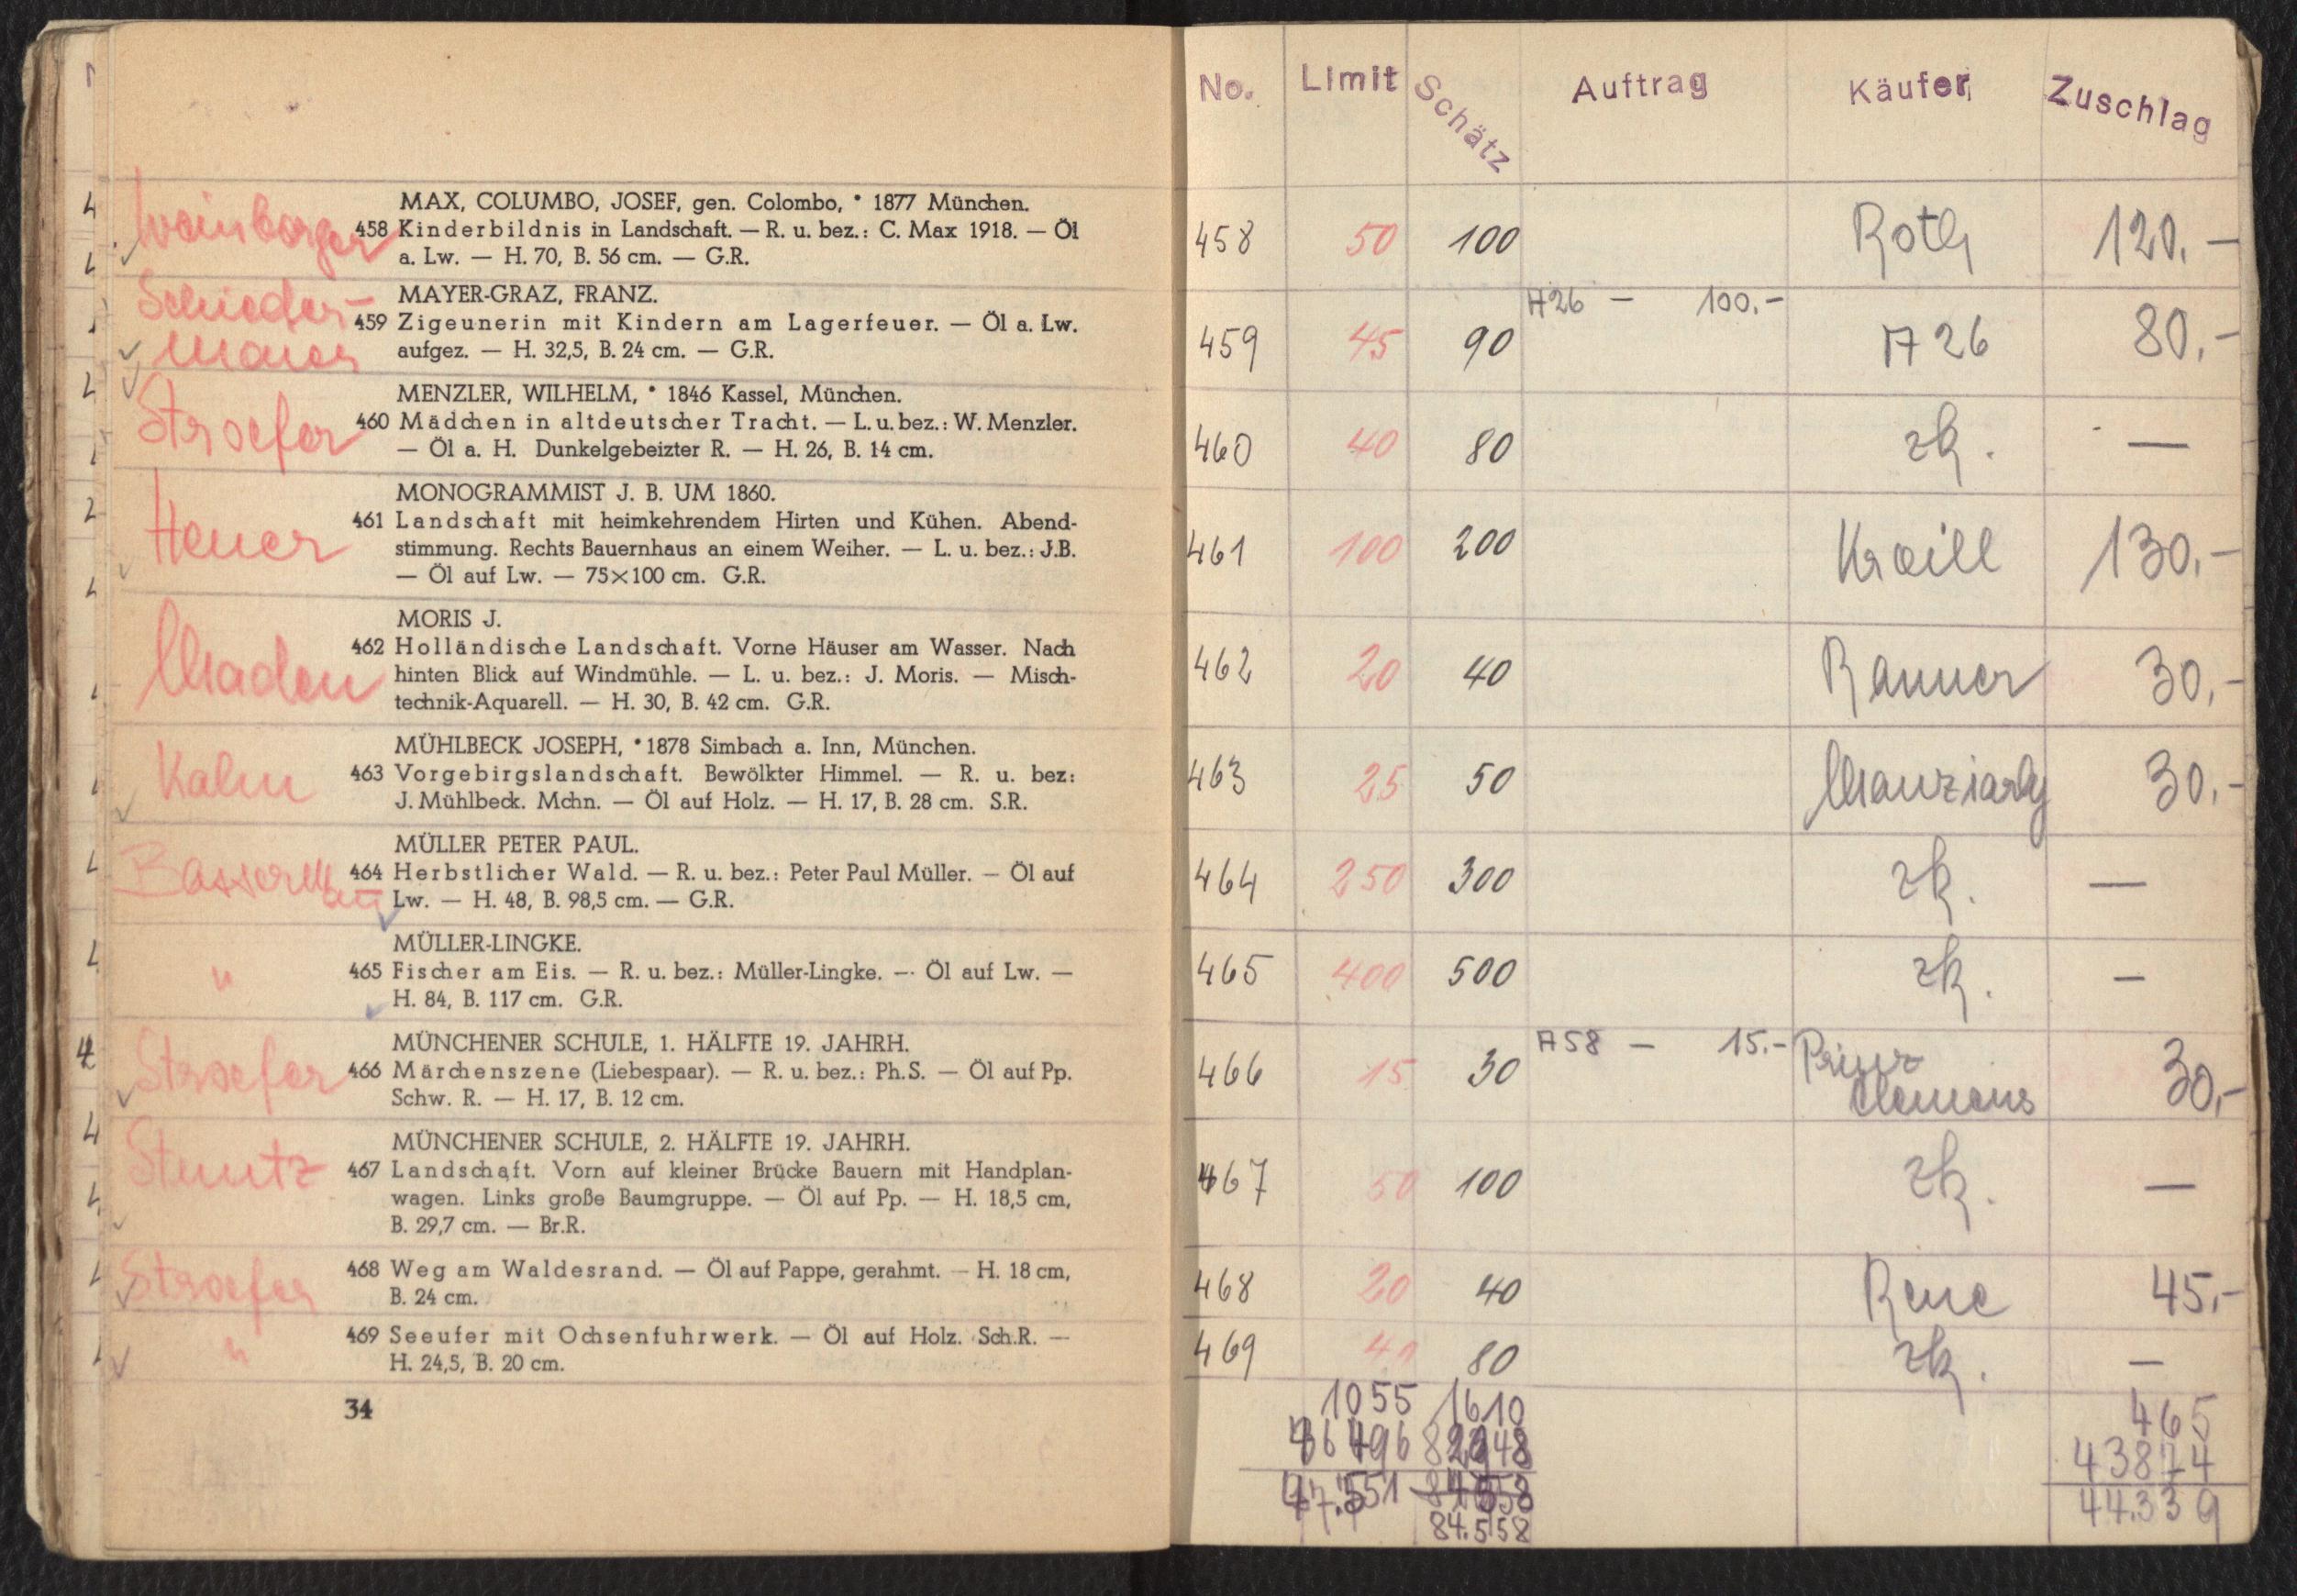 MAX, COLUMBO, JOSEF, gen. Colombo, * 1877 München.
Weinberger 458 Kinderbildnis in Landschaft. — R. u. bez.: C. Max 1918. — Öl
a. Lw. — H. 70, B. 56 cm. — G.R.
Schieder- MAYER-GRAZ, FRANZ.
459 Zigeunerin mit Kindern am Lagerfeuer. — Öl a. Lw.
aufgez. — H. 32,5, B. 24 cm. — G.R.
MENZLER, WILHELM, * 1846 Kassel, München.
Stroefer 460 Mädchen in altdeutscher Tracht. — L. u. bez.: W. Menzler.
— Öl a. H. Dunkelgebeizter R. — H. 26, B. 14 cm.
MONOGRAMMIST J. B. UM 1860.
Heuer 461 Landschaft mit heimkehrendem Hirten und Kühen. Abend-
stimmung. Rechts Bauernhaus an einem Weiher. — L. u. bez.: J.B.
— Öl auf Lw. — 75×100 cm. G.R.
MORIS J.
462 Holländische Landschaft. Vorne Häuser am Wasser. Nach
Maden hinten Blick auf Windmühle. — L. u. bez.: J. Moris. — Misch-
technik-Aquarell. — H. 30, B. 42 cm. G.R.
MÜHLBECK JOSEPH, *1878 Simbach a. Inn, München.
Kalm 463 Vorgebirgslandschaft. Bewölkter Himmel. — R. u. bez:
J. Mühlbeck. Mchn. — Öl auf Holz. — H. 17, B. 28 cm. S.R.
MÜLLER PETER PAUL.
464 Herbstlicher Wald. — R. u. bez.: Peter Paul Müller. — Öl auf
Lw. — H. 48, B. 98,5 cm. — G.R.
MÜLLER-LINGKE.
" 465 Fischer am Eis. — R. u. bez.: Müller-Lingke. — Öl auf Lw. —
H. 84, B. 117 cm. G.R.
MÜNCHENER SCHULE, 1. HÄLFTE 19. JAHRH.
Stroefer 466 Märchenszene (Liebespaar). — R. u. bez.: Ph.S. — Öl auf Pp.
Schw. R. — H. 17, B. 12 cm.
MÜNCHENER SCHULE, 2. HÄLFTE 19. JAHRH.
Stuntz 467 Landschaft. Vorn auf kleiner Brücke Bauern mit Handplan-
wagen. Links große Baumgruppe. — Öl auf Pp. — H. 18,5 cm,
B. 29,7 cm. — Br.R.
Stroefer 468 Weg am Waldesrand. — Öl auf Pappe, gerahmt. — H. 18 cm,
B. 24 cm.
" 469 Seeufer mit Ochsenfuhrwerk. — Öl auf Holz. Sch.R. —
H. 24,5, B. 20 cm.
34
No. Limit Schätz Auftrag Käufer Zuschlag
458 50 100 Roth 120.—
459 45 90 A26 — 100.- A 26 80.-
460 40 80 zk. —
461 100 200 Kraill 130.-
462 20 40 Ranner 30.-
463 25 50 Manziarly 30.-
464 250 300 zk. —
465 400 500 zk. —
466 15 30 A58 — 15.- Prinz
Clemens 30.-
467 50 100 zk. —
468 20 40 Rene 45.-
469 40 80 zk. —
1055 1610 465
43874
44.339
84.558